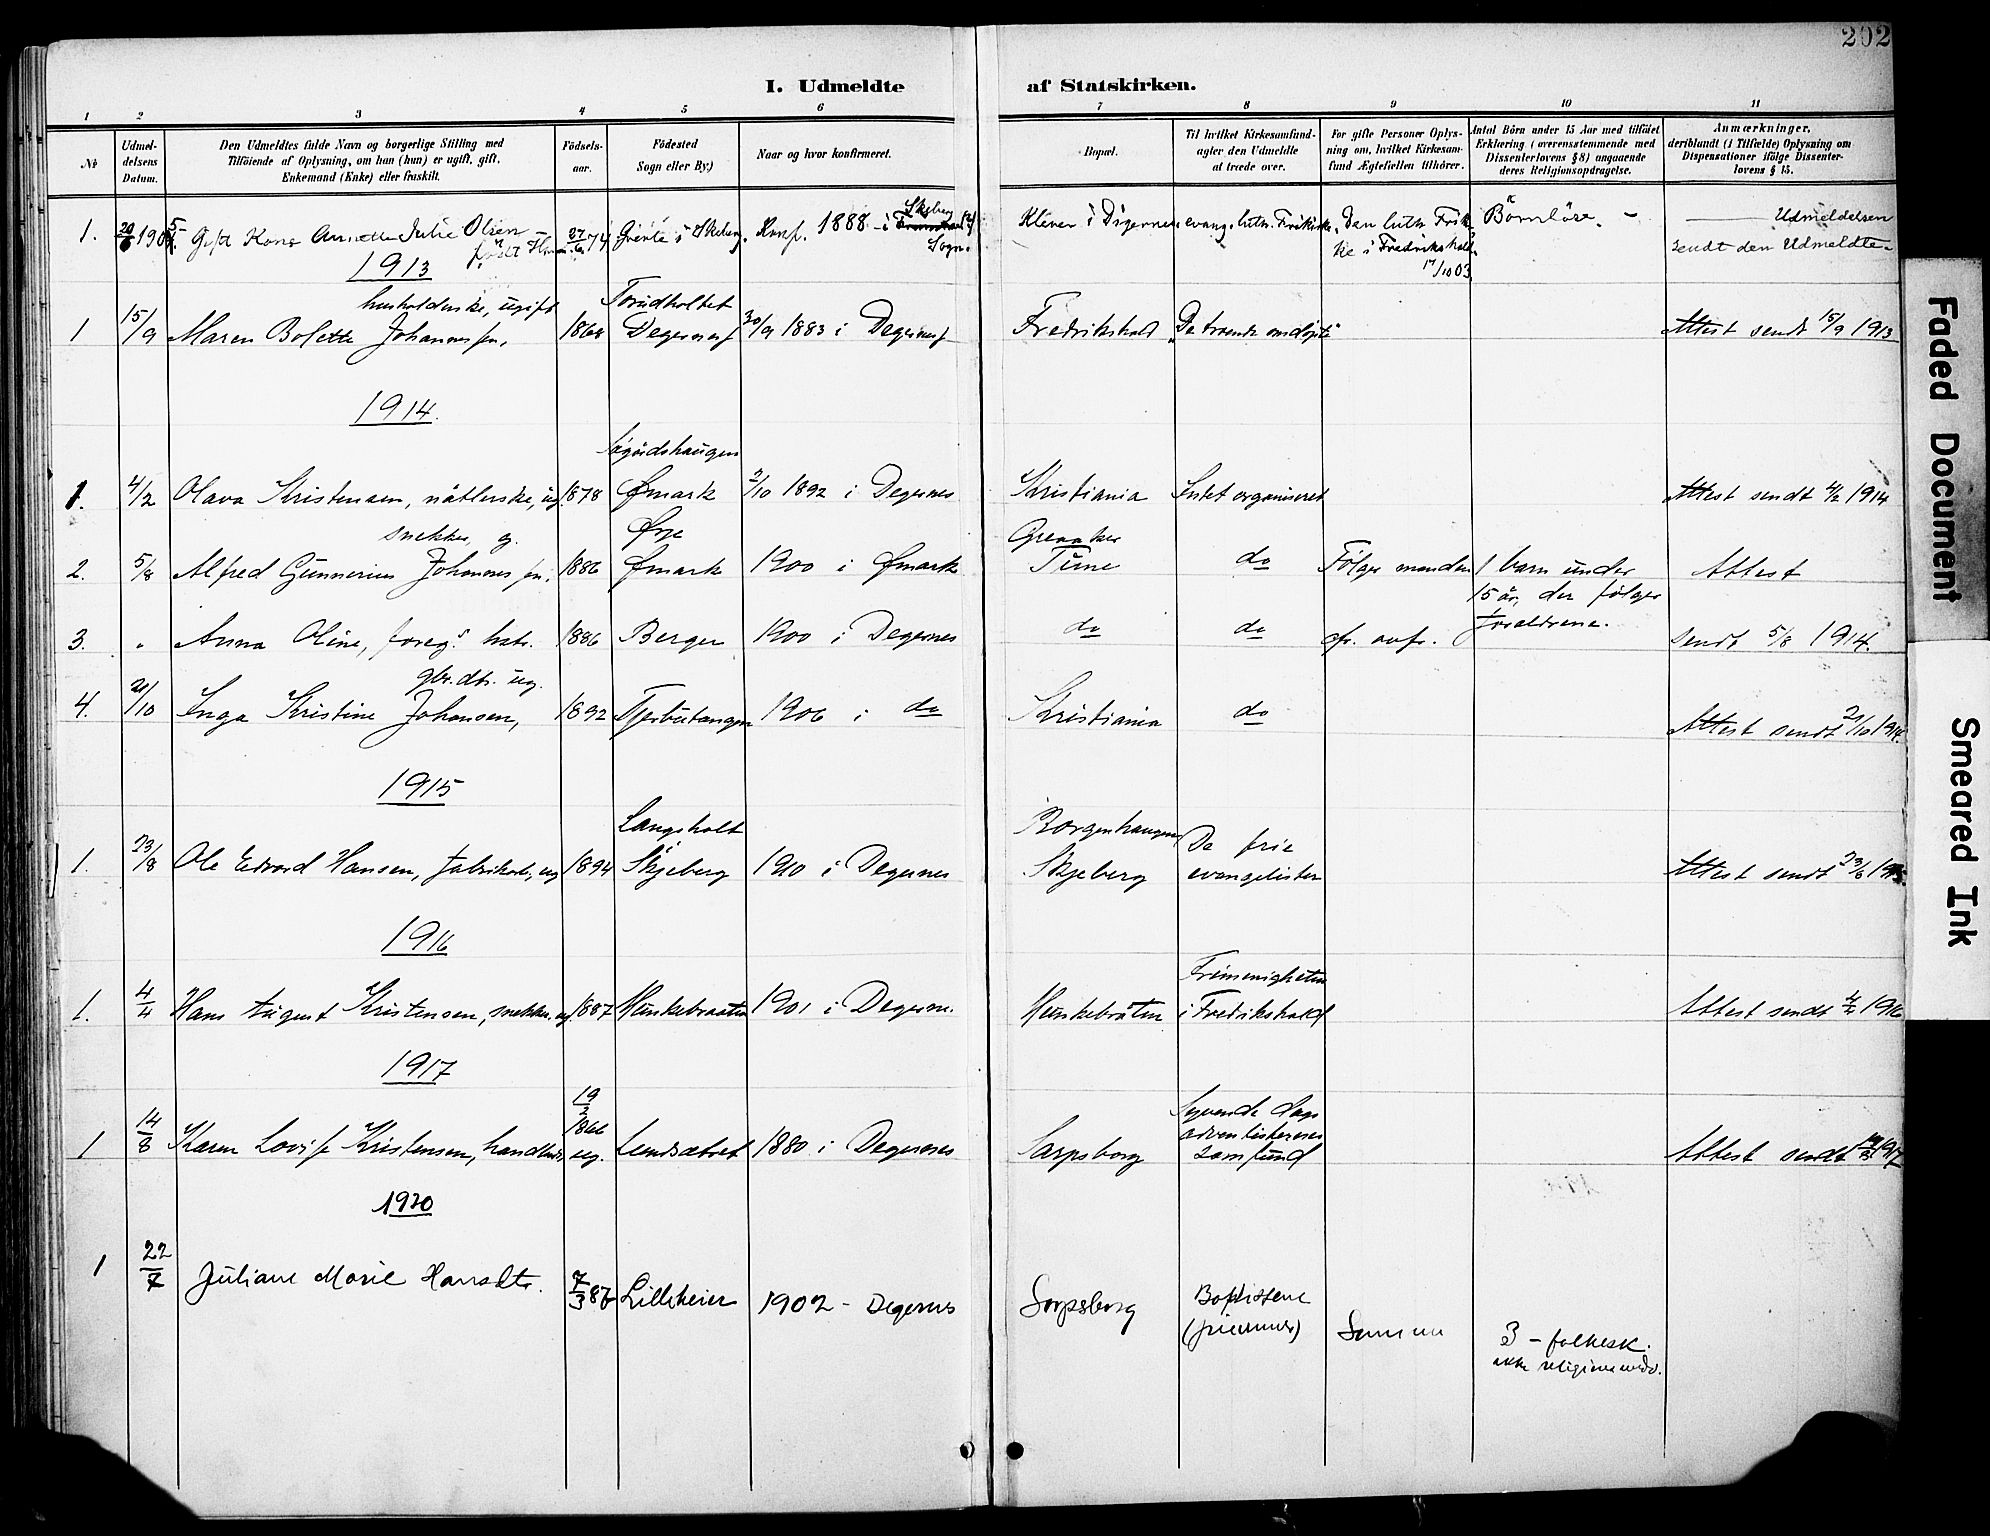 202
I. Udmeldte af Statskirken.
1 2 3 4 5 6 7 8 9 10 11
No
Udmel-
delsens
Datum.
Den Udmeldtes fulde Navn og borgerlige Stilling med
Tilføiende af Oplysning, om han (hun) er ugift, gift,
Enkemand (Enke) eller fraskilt.
Fødsels-
aar.
Fødested
Sogn eller By.)
Naar og hvor konfirmeret.
Bopæl.
Til hvilket Kirkesamfund-
agter den Udmeldte
at træde over.
For gifte Personer Oplys-
ning om, hvilket Kirkesam-
fund Ægtefællen tilhører.
Antal Börn under 15 Aar med tilføiet
Erklæring (overensstemmende med
Dissenterlovens § 8) angaaende
deres Religionsopdragelse.
Anmærkninger,
deriblandt (i Tilfælde) Oplysning om
Dispensationer ifölge Dissenter-
lovens § 15.
1. Gift Kone Annette Julie Olsen 27/6 74 i Skeberg. Konf. 1888 - i Skeberg Sogn.
Klever i Digernes evang. luth. Frikirke. Den luth. Frikir-
ke i Fredrikshald 17/10 03
Börnlöse. -
Udmeldelsen
sendt den Udmeldte
1913
husholderske, ugift
1 15/9 Maren Bolette Johannesen, 1868 Torudholtet
Degernes 30/9 1883 i Degernes Fredrikshald De troende omdöpte Attest sendt 15/9 1913
1914
1. 4/2 Olava Kristensen, nåtlerske, ug. 1878 Ømark 2/10 1892 i Degernes Kristiania Intet organiseret Attest sendt 4/2 1914
snekker, g. Ørje Greaaker
2. 5/8 Alfred Gunnerius Johannesen, 1886 Ømark 1900 i Ømark Tune do Følger manden 1 barn under
15 år, der følger
forældrene. Attest
3. " Anna Oline, foreg.s hstr. 1886 Berger 1900 i Degernes do do cfr. ovfr. sendt 5/8 1914.
gbr. dtr. ug.
4. 21/10 Inga Kristine Johansen, 1892 Tjerbutangen 1906 i do Kristiania do Attest sendt 21/10 1914.
1915
Langsholt Borgenhaugen
1. 23/8 Ole Edvard Hansen, fabrikarb., ug 1894 Skjeberg 1910 i Degernes Skjeberg De frie
evangelister Attest sendt 23/8 1915.
1916
1. 4/4 Hans August Kristensen, snekker. ug. 1887 Munkebraaten 1901 i Degernes. Munkebråten Frimenigheten
i Fredrikshald Attest sendt 4/4 1916
1917
1 14/8 Karen Lovise Kristensen, handlende, ug. 19/2 1866 1880 i Degernes Sarpsborg Syvende dags
adventisternes
samfund Attest sendt 14/8 1917
1920
1 22/7 Juliane Marie Hansdtr. 7/3 87 Lilleheier 1902 - Degernes Sarpsborg Baptistene
Samme 3 - folkesk.
ikke religionsunderv.
Faded Document
Smeared Ink